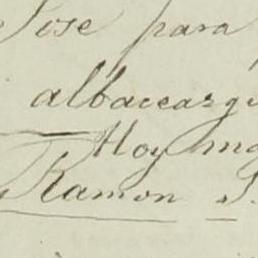 Jose para
albaceazgo
Hoy
Ramon S.